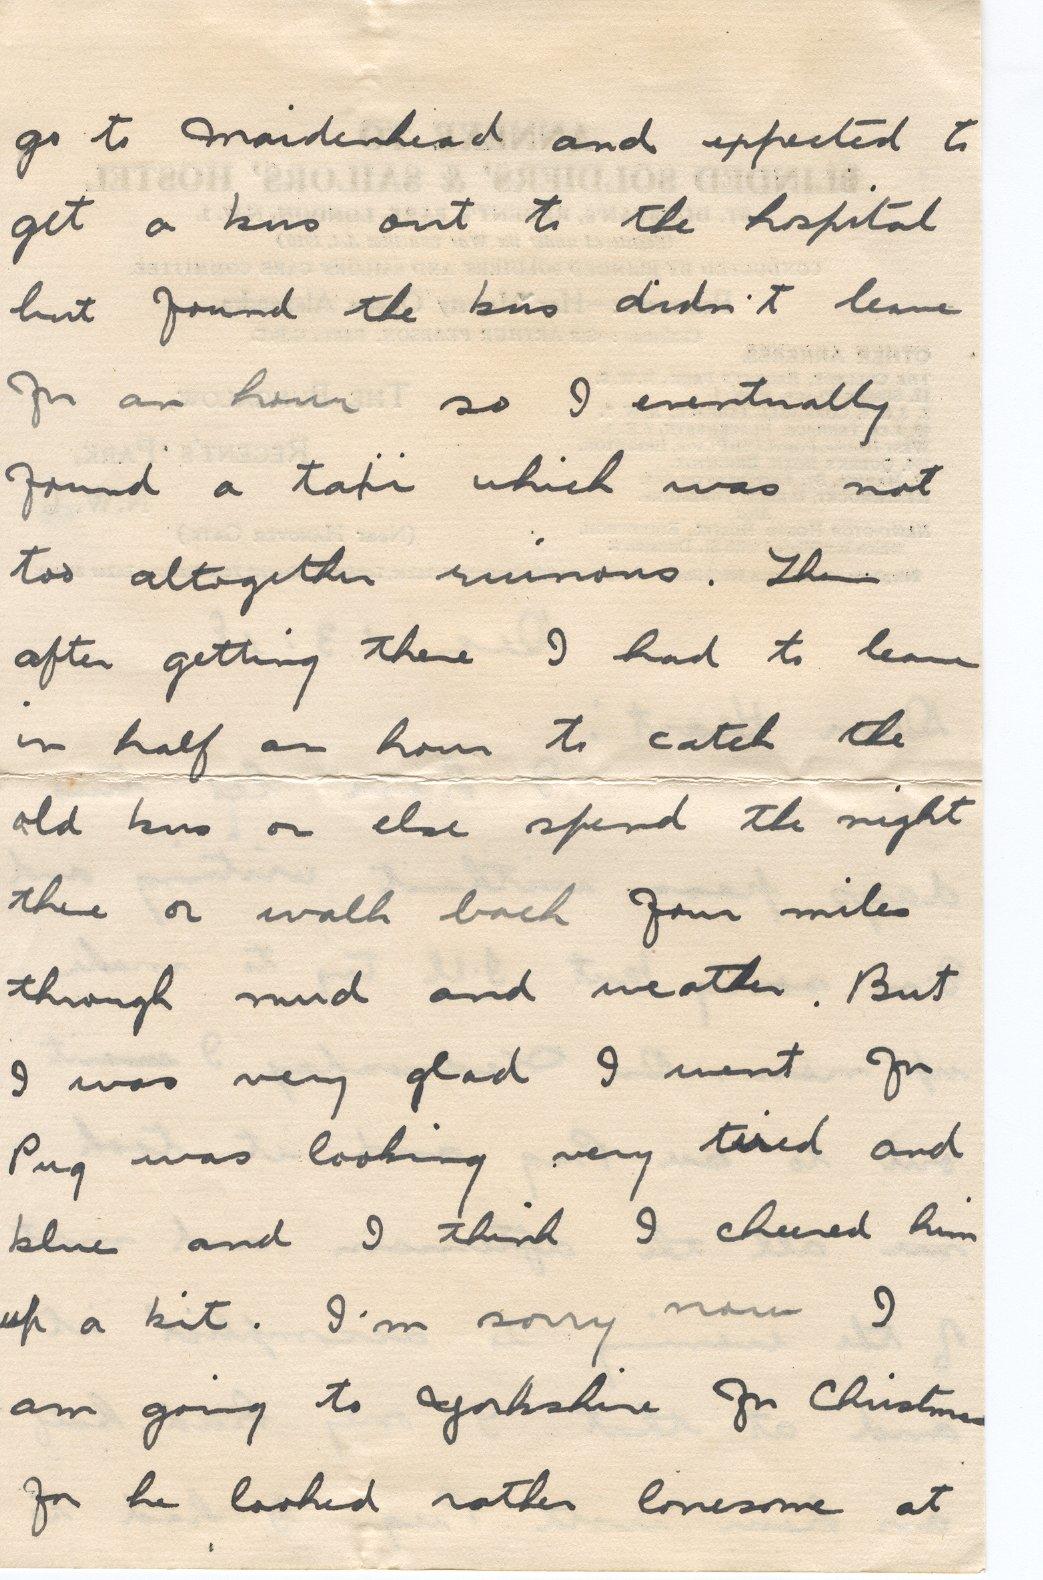 go to Maidenhead and expected to
get a bus out to the hospital
but found the bus didn't leave
for an hour so I eventually
found a taxi which was not
too altogether ruinous. Then
after getting there I had to leave
in half an hour to catch the
old bus or else spend the night
there or walk back four miles
through mud and weather. But
I was very glad I went for
Pug was looking very tired and
blue and I think I cheered him
up a bit. I'm sorry now I
am going to Yorkshire for Christmas
for he looked rather lonesome at